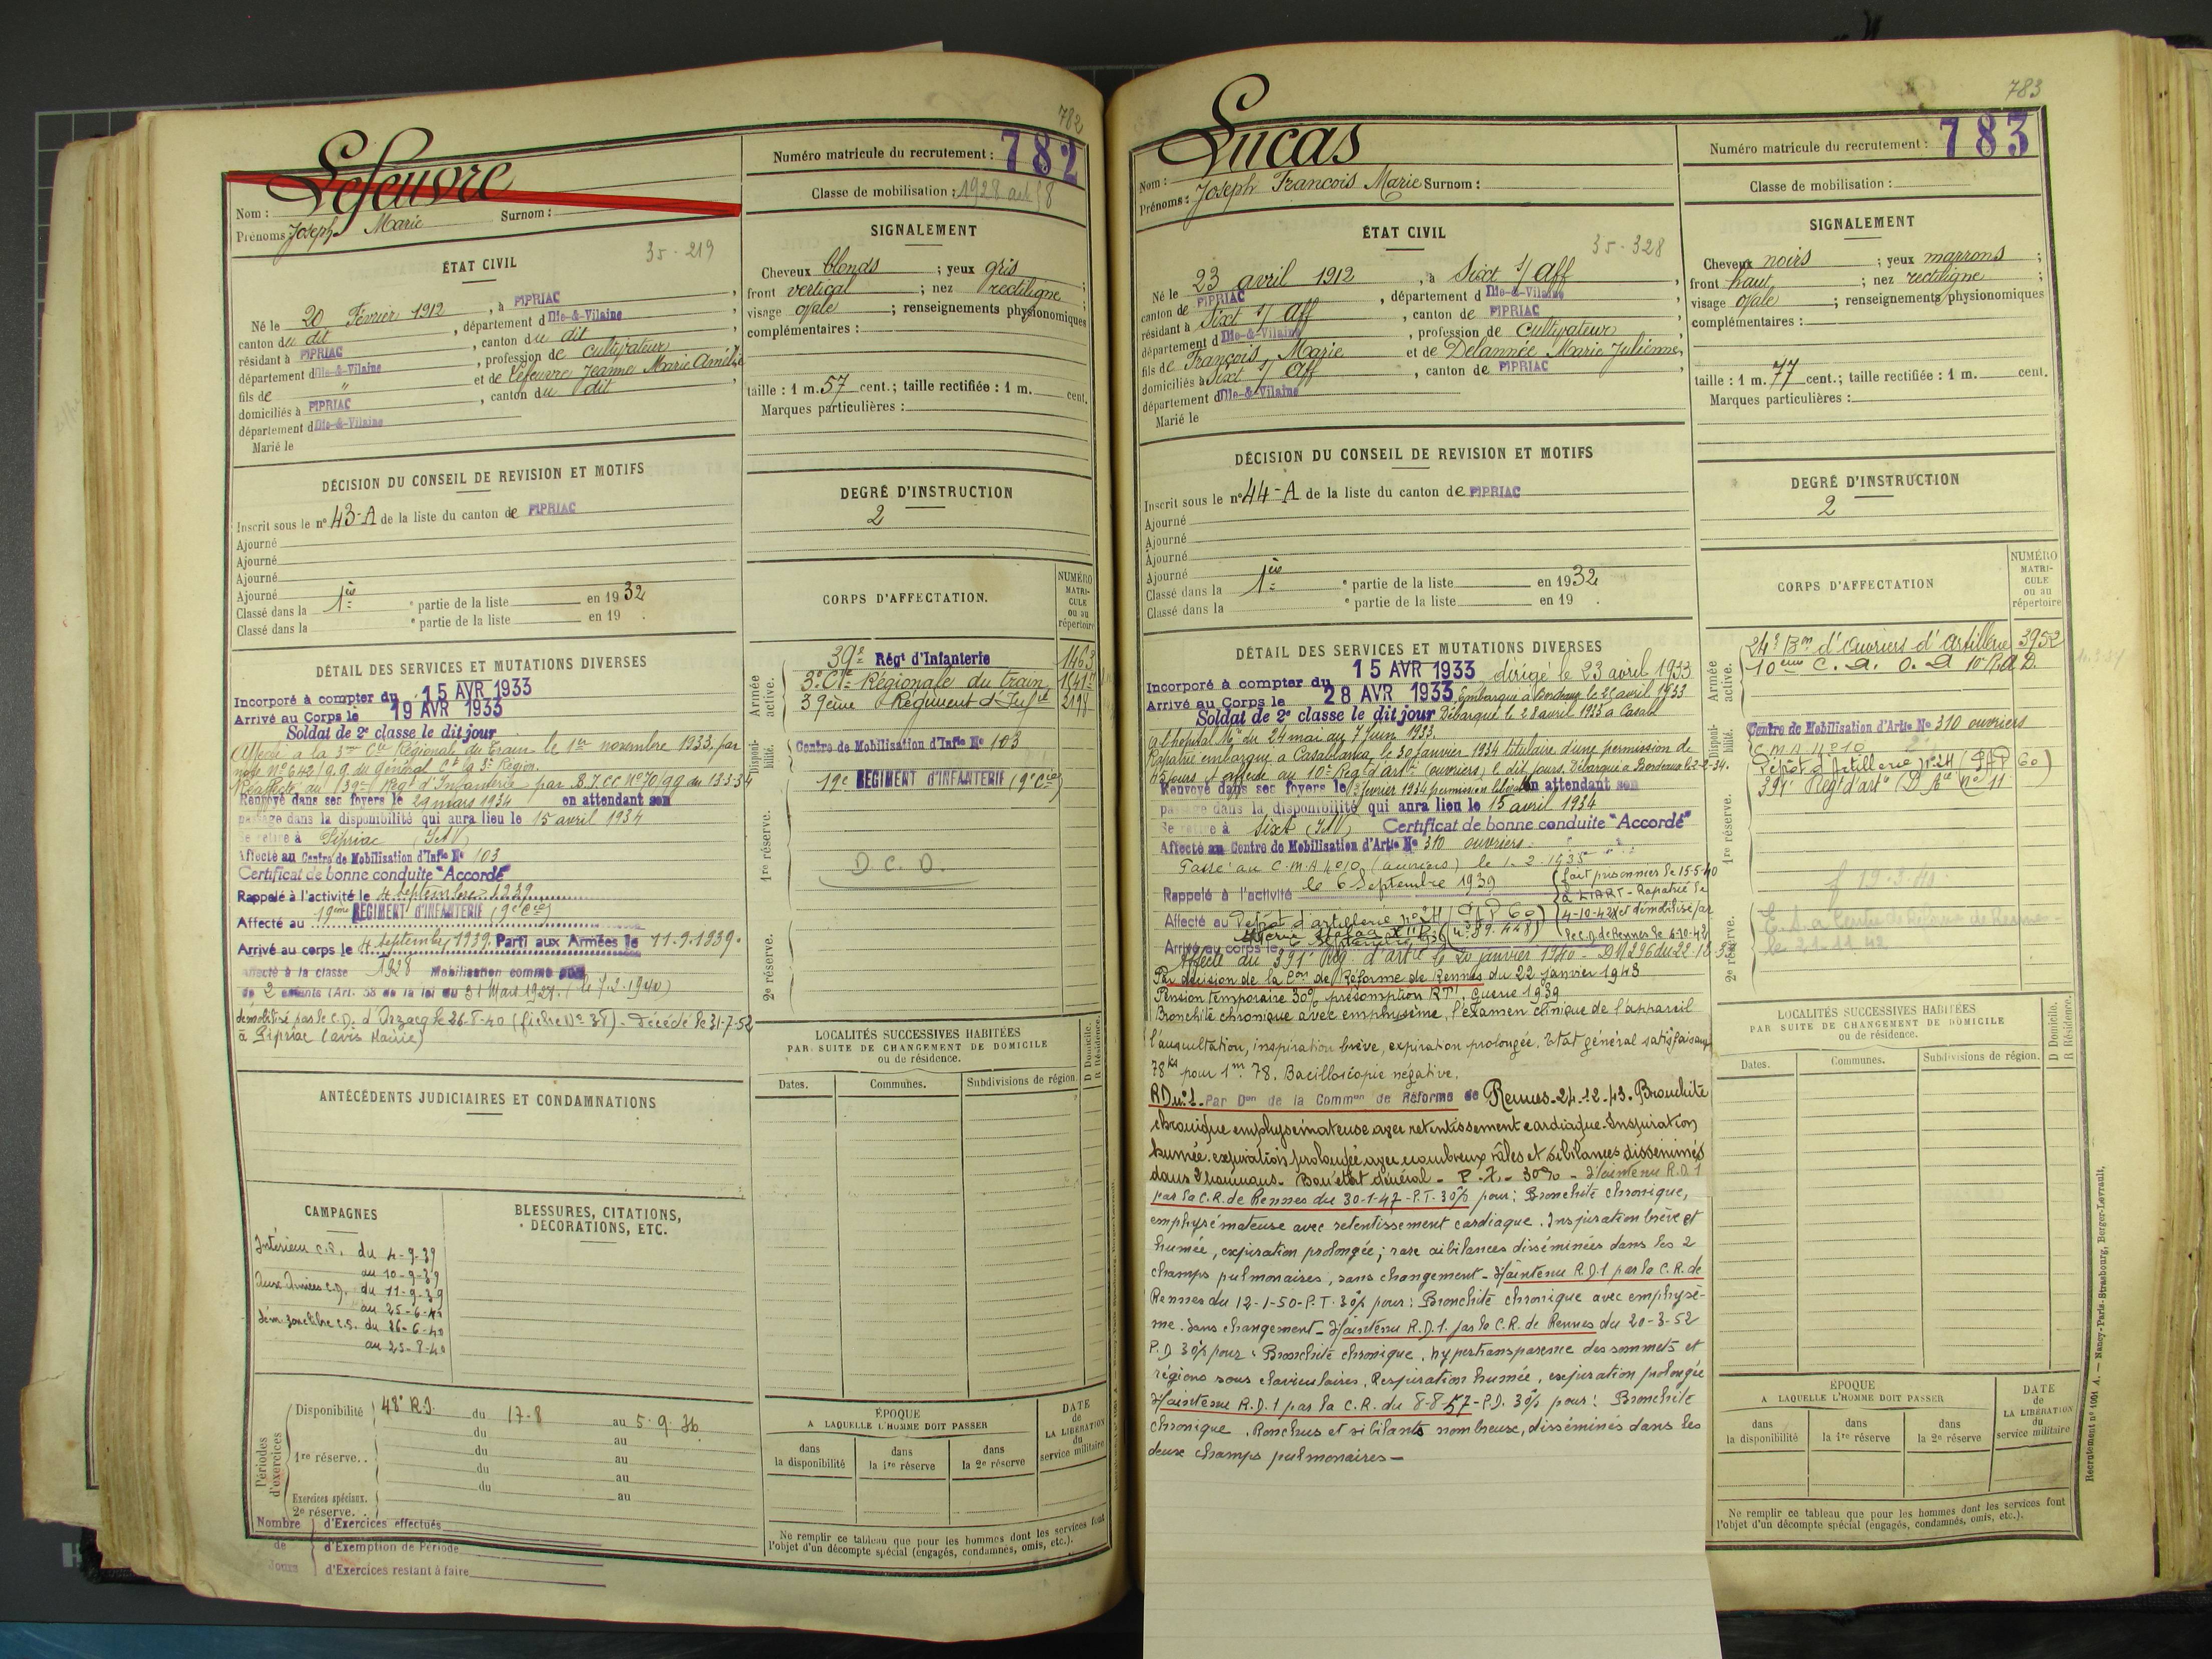 782
Numéro matricule du recrutement : 782
Lefeuvre
Nom :
Prénoms : Joseph Marie Surnom :
Classe de mobilisation : 1928 art 58
ÉTAT CIVIL
35-219
Né le 20 Février 1912, à PIPRIAC
canton du dit, département d'Ille-&-Vilaine
résidant à PIPRIAC, canton du dit
département d'Ille-&-Vilaine, profession de cultivateur
fils de " et de Lefeuvre Jeanne Marie Amélie
domiciliés à PIPRIAC, canton du dit
département d'Ille-&-Vilaine
Marié le
SIGNALEMENT
Cheveux blonds ; yeux gris ;
front vertical ; nez rectiligne ;
visage ovale ; renseignements physionomiques
complémentaires :
taille : 1 m. 57 cent. ; taille rectifiée : 1 m. cent.
Marques particulières :
DÉCISION DU CONSEIL DE REVISION ET MOTIFS
Inscrit sous le n° 43-A de la liste du canton de PIPRIAC
Ajourné
Ajourné
Ajourné
Ajourné
Classé dans la 1ère partie de la liste en 1932
Classé dans la e partie de la liste en 19 .
DEGRÉ D'INSTRUCTION
2
CORPS D'AFFECTATION.
NUMÉRO MATRI-CULE ou au répertoire
Armée active.
39e Régt d'Infanterie 1463
3e Cie Régionale du train 1541
39ème Régiment d'Inf 2198
Disponibilité.
Centre de Mobilisation d'Infie N° 103
19e REGIMENT D'INFANTERIE (9e Cie)
1re réserve.
D.C.D.
2e réserve.
DÉTAIL DES SERVICES ET MUTATIONS DIVERSES
Incorporé à compter du 15 AVR 1933
Arrivé au Corps le 19 AVR 1933
Soldat de 2e classe le dit jour
Affecté à la 3me Cie Régionale du Train le 1er novembre 1933, par
note N° 642/9.9. du Général Ct la 3e Région.
Réaffecté au 39e Regt d'Infanterie par
Renvoyé dans ses foyers le 29 mars 1934 en attendant son
passage dans la disponibilité qui aura lieu le 15 avril 1934
Se retire à Pipriac (I et V)
Affecté au Centre de Mobilisation d'Infie N° 103
Certificat de bonne conduite "Accordé"
Rappelé à l'activité le 4 septembre 1939
Affecté au 19ème REGIMENT D'INFANTERIE (9e Cie)
Arrivé au corps le 4 septembre 1939. Parti aux Armées le 11.9.1939.
Affecté à la classe 1928 Mobilisation comme père
de 2 enfants (Art. 58 de la loi du 31 Mars 1928) (le 7.2.1940)
démobilisé par le C.D. d'Arzacq le 26-8-40 (fiche N° 38) - Décédé le 31-7-52
à Pipriac (avis Mairie)
ANTÉCÉDENTS JUDICIAIRES ET CONDAMNATIONS
LOCALITÉS SUCCESSIVES HABITÉES
PAR SUITE DE CHANGEMENT DE DOMICILE
ou de résidence.
Dates. Communes. Subdivisions de région. D Domicile. R Résidence.
CAMPAGNES
Intérieur C.S. du 4-9-39
au 10-9-39
Aux Armées C.D. du 11-9-39
au 25-6-40
dém. zone libre C.S. du 26-6-40
au 25-8-40
BLESSURES, CITATIONS, DÉCORATIONS, ETC.
Périodes d'exercices
Disponibilité 48e R.I. du 17-8 au 5-9-36
du au
1re réserve.. du au
du au
du au
Exercices spéciaux.
2e réserve. . au
Nombre de Jours
d'Exercices effectués
d'Exemption de Période
d'Exercices restant à faire
ÉPOQUE
A LAQUELLE L'HOMME DOIT PASSER
dans la disponibilité dans la 1re réserve dans la 2e réserve
DATE de LA LIBÉRATION du service militaire
Ne remplir ce tableau que pour les hommes dont les services font
l'objet d'un décompte spécial (engagés, condamnés, omis, etc.).
783
Numéro matricule du recrutement : 783
Lucas
Nom :
Prénoms : Joseph Francois Marie Surnom :
Classe de mobilisation :
ÉTAT CIVIL
35-328
Né le 23 avril 1912, à Sixt s/ Aff
canton de PIPRIAC, département d'Ille-&-Vilaine
résidant à Sixt s/ Aff, canton de PIPRIAC
département d'Ille-&-Vilaine, profession de cultivateur
fils de François, Marie et de Delannée Marie Julienne,
domiciliés à Sixt s/ Aff, canton de PIPRIAC
département d'Ille-&-Vilaine
Marié le
SIGNALEMENT
Cheveux noirs ; yeux marrons ;
front haut ; nez rectiligne ;
visage ovale ; renseignements physionomiques
complémentaires :
taille : 1 m. 77 cent. ; taille rectifiée : 1 m. cent.
Marques particulières :
DÉCISION DU CONSEIL DE REVISION ET MOTIFS
Inscrit sous le n° 44-A de la liste du canton de PIPRIAC
Ajourné
Ajourné
Ajourné
Ajourné
Classé dans la 1ère partie de la liste en 1932
Classé dans la e partie de la liste en 19 .
DEGRÉ D'INSTRUCTION
2
CORPS D'AFFECTATION
NUMÉRO MATRI-CULE ou au répertoire
Armée active.
24e Bon d'ouvriers d'artillerie 3952
10ème C.A. O.A 10e R.A.D.
Disponibilité.
Centre de Mobilisation d'Artie N° 310 ouvriers
C M A N° 10
Dépôt d'Artillerie N° 24 (PAD 60)
1re réserve.
391e Reg d'art
2e réserve.
DÉTAIL DES SERVICES ET MUTATIONS DIVERSES
Incorporé à compter du 15 AVR 1933 dirigé le 23 avril 1933
Arrivé au Corps le 28 AVR 1933 Embarqué à Bordeaux le 25 avril 1933
Soldat de 2e classe le dit jour Débarqué le 28 avril 1933 à Casab
à l'hôpital du 24 mai au 7 Juin 1933.
Rapatrié embarqué à Casablanca, le 30 Janvier 1934 titulaire d'une permission de
jours affecté au 10e Reg d'art (ouvriers) le dit jour. Débarqué à Bordeaux le 2-2-34.
Renvoyé dans ses foyers le février 1934 permission libérable en attendant son
passage dans la disponibilité qui aura lieu le 15 avril 1934
Se retire à Sixt (I et V) Certificat de bonne conduite "Accordé"
Affecté au Centre de Mobilisation d'Artie N° 310 ouvriers.
Passé au C.M.A N° 10 (ouvriers) le 1-2-1935
Rappelé à l'activité le 6 Septembre 1939 (fait prisonnier le 15-5-40
à LIART - Rapatrié le
Affecté au Dépôt d'artillerie N° 24 (PAD 60) 4-10-42 et démobilisé par
le C.D. de Rennes le 6-10-42
Arrivé au corps le 6 Septembre
Affecté au 391e Reg. d'artie le 20 janvier 1940 -
Par décision de la Con de Réforme de Rennes du 22 janvier 1943
Pension temporaire 30% présomption RT1, guerre 1939
Bronchite chronique avec emphysème, l'examen clinique de l'appareil
l'auscultation, inspiration brève, expiration prolongée, Etat général satisfaisant
78 ks pour 1m.78. Bacilloscopie négative.
RD n°1 - Par Don de la Common de Réforme de Rennes-24-12-43. Bronchite
chronique emphysémateuse avec retentissement cardiaque. Inspiration
humée. expiration prolongée avec nombreux râles et sibilances disséminés
dans 2 poumons - Bon état général - P.T. - 30% - Maintenu R.D.1
par la C.R. de Rennes du 30-1-47 - P.T. 30% pour : Bronchite chronique,
emphysémateuse avec retentissement cardiaque. Inspiration brève et
humée, expiration prolongée ; rare sibilances disséminées dans les 2
champs pulmonaires, sans changement - Maintenu R.D.1 par la C.R. de
Rennes du 12-1-50 - P.T. 30% pour : Bronchite chronique avec emphysè-
me. Sans changement - Maintenu R.D.1. par la C.R. de Rennes du 20-3-52
P.D 30% pour : Bronchite chronique, hypertransparence des sommets et
régions sous claviculaires, Respiration humée, expiration prolongée
Maintenu R.D.1 par la C.R. du 8-8-57 - P.D. 30% pour : Bronchite
chronique. Ronchus et sibilants nombreux, disséminés dans les
deux champs pulmonaires -
LOCALITÉS SUCCESSIVES HABITÉES
PAR SUITE DE CHANGEMENT DE DOMICILE
ou de résidence.
Dates. Communes. Subdivisions de région. D Domicile. R Résidence.
ÉPOQUE
A LAQUELLE L'HOMME DOIT PASSER
dans la disponibilité dans la 1re réserve dans la 2e réserve
DATE de LA LIBÉRATION du service militaire
Ne remplir ce tableau que pour les hommes dont les services font
l'objet d'un décompte spécial (engagés, condamnés, omis, etc.).
Recrutement n° 1001 A. — Nancy-Paris-Strasbourg, Berger-Levrault.